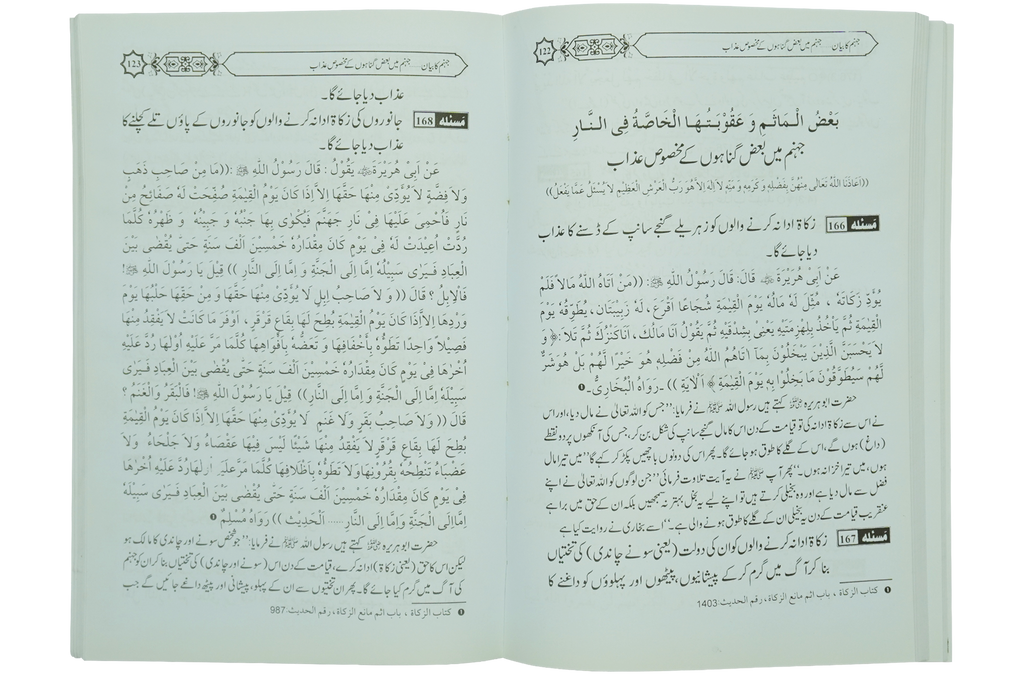 جہنم کا بیان ..... جہنم میں بعض گناہوں کے مخصوص عذاب
122
بَعْضُ الْمَاٰثِمِ وَ عَقُوْبَتُهَا الْخَاصَّةُ فِى النَّارِ
جہنم میں بعض گناہوں کے مخصوص عذاب
((اَعَاذَنَا اللّٰهُ تَعَالٰى مِنْهُنَّ بِفَضْلِهٖ وَ كَرَمِهٖ وَ مَنِّهٖ لَا اِلٰهَ اِلَّا هُوَ رَبُّ الْعَرْشِ الْعَظِيْمِ لَا يُسْئَلُ عَمَّا يَفْعَلُ))
مَسئله 166 زکاۃ ادا نہ کرنے والوں کو زہریلے گنجے سانپ کے ڈسنے کا عذاب
دیا جائے گا۔
عَنْ اَبِىْ هُرَيْرَةَ ﷜ قَالَ: قَالَ رَسُوْلُ اللّٰهِ ﷺ: ((مَنْ اٰتَاهُ اللّٰهُ مَالاً فَلَمْ
يُؤَدِّ زَكَاتَهٗ ، مُثِّلَ لَهٗ مَالُهٗ يَوْمَ الْقِيٰمَةِ شُجَاعًا اَقْرَعَ ، لَهٗ زَبِيْبَتَانِ ، يُطَوِّقُهٗ يَوْمَ
الْقِيٰمَةِ ثُمَّ يَاْخُذُ بِلِهْزِمَتَيْهِ يَعْنِىْ بِشِدْقَيْهِ ثُمَّ يَقُوْلُ اَنَا مَالُكَ، اَنَا كَنْزُكَ ثُمَّ تَلاَ : ﴿ وَ
لاَ يَحْسَبَنَّ الَّذِيْنَ يَبْخَلُوْنَ بِمَآ اٰتَاهُمُ اللّٰهُ مِنْ فَضْلِهٖ هُوَ خَيْرًا لَّهُمْ بَلْ هُوَ شَرٌّ
لَّهُمْ سَيُطَوَّقُوْنَ مَا بَخِلُوْا بِهٖ يَوْمَ الْقِيٰمَةِ ﴾ اَلْاٰيَةِ )) ـ رَوَاهُ الْبُخَارِىُّ ـ ❶
حضرت ابو ہریرہ ﷜ کہتے ہیں رسول اللہ ﷺ نے فرمایا: ”جس کو اللہ تعالیٰ نے مال دیا، اور اس
نے اس سے زکاۃ ادا نہ کی تو قیامت کے دن اس کا مال گنجے سانپ کی شکل بن کر، جس کی آنکھوں پر دو نقطے
(داغ) ہوں گے، اس کے گلے کا طوق ہو جائے گا۔ پھر اس کی دونوں باچھیں پکڑ کر کہے گا ”میں تیرا مال
ہوں، میں تیرا خزانہ ہوں۔“ پھر آپ ﷺ نے یہ آیت تلاوت فرمائی ”جن لوگوں کو اللہ تعالیٰ نے اپنے
فضل سے مال دیا ہے اور وہ بخیلی کرتے ہیں تو اپنے لیے یہ بخل بہتر نہ سمجھیں بلکہ ان کے حق میں برا ہے
عنقریب قیامت کے دن یہ بخیلی ان کے گلے کا طوق ہونے والی ہے۔“ اسے بخاری نے روایت کیا ہے
مَسئله 167 زکاۃ ادا نہ کرنے والوں کو ان کی دولت (یعنی سونے چاندی) کی تختیاں
بنا کر آگ میں گرم کر کے پیشانیوں، پیٹھوں اور پہلوؤں کو داغنے کا
❶ كتاب الزكاة ، باب اثم مانع الزكاة ، رقم الحديث:1403
جہنم کا بیان ..... جہنم میں بعض گناہوں کے مخصوص عذاب
123
عذاب دیا جائے گا۔
مَسئله 168 جانوروں کی زکاۃ ادا نہ کرنے والوں کو جانوروں کے پاؤں تلے کچلنے کا
عذاب دیا جائے گا۔
عَنْ اَبِىْ هُرَيْرَةَ ﷜ يَقُوْلُ : قَالَ رَسُوْلُ اللّٰهِ ﷺ :((مَا مِنْ صَاحِبِ ذَهَبٍ
وَلاَ فِضَّةٍ لاَ يُؤَدِّىْ مِنْهَا حَقَّهَا اِلاَّ اِذَا كَانَ يَوْمُ الْقِيٰمَةِ صُفِّحَتْ لَهٗ صَفَائِحُ مِنْ
نَارٍ فَاُحْمِىَ عَلَيْهَا فِىْ نَارِ جَهَنَّمَ فَيُكْوٰى بِهَا جَنْبُهٗ وَ جَبِيْنُهٗ وَ ظَهْرُهٗ كُلَّمَا
رُدَّتْ اُعِيْدَتْ لَهٗ فِىْ يَوْمٍ كَانَ مِقْدَارُهٗ خَمْسِيْنَ اَلْفَ سَنَةٍ حَتّٰى يُقْضٰى بَيْنَ
الْعِبَادِ فَيَرٰى سَبِيْلُهٗ اِمَّا اِلَى الْجَنَّةِ وَ اِمَّا اِلَى النَّارِ )) قِيْلَ يَا رَسُوْلَ اللّٰهِ ﷺ !
فَالْاِبِلُ ؟ قَالَ (( وَ لاَ صَاحِبُ اِبِلٍ لاَ يُؤَدِّىْ مِنْهَا حَقَّهَا وَ مِنْ حَقِّهَا حَلْبُهَا يَوْمَ
وِرْدِهَا اِلاَّ اِذَا كَانَ يَوْمُ الْقِيٰمَةِ بُطِحَ لَهَا بِقَاعٍ قَرْقَرٍ ، اَوْفَرَ مَا كَانَتْ لاَ يَفْقِدُ مِنْهَا
فَصِيْلاً وَاحِدًا تَطَؤُهٗ بِاَخْفَافِهَا وَ تَعَضُّهٗ بِاَفْوَاهِهَا كُلَّمَا مَرَّ عَلَيْهِ اُوْلٰهَا رُدَّ عَلَيْهِ
اُخْرٰهَا فِىْ يَوْمٍ كَانَ مِقْدَارُهٗ خَمْسِيْنَ اَلْفَ سَنَةٍ حَتّٰى يُقْضٰى بَيْنَ الْعِبَادِ فَيَرٰى
سَبِيْلَهٗ اِمَّا اِلَى الْجَنَّةِ وَ اِمَّا اِلَى النَّارِ)) قِيْلَ يَا رَسُوْلَ اللّٰهِ ﷺ! فَالْبَقَرُ وَالْغَنَمُ ؟
قَالَ (( وَلاَ صَاحِبُ بَقَرٍ وَلاَ غَنَمٍ لاَ يُؤَدِّىْ مِنْهَا حَقَّهَا اِلاَّ اِذَا كَانَ يَوْمُ الْقِيٰمَةِ
بُطِحَ لَهَا بِقَاعٍ قَرْقَرٍ لاَ يَفْقِدُ مِنْهَا شَيْئًا لَيْسَ فِيْهَا عَقْصَاءُ وَلاَ جَلْحَاءُ وَلاَ
عَضْبَاءُ تَنْطِحُهٗ بِقُرُوْنِهَا وَلاَ تَطَؤُهٗ بِاَظْلاَفِهَا كُلَّمَا مَرَّ عَلَيْهِ اُوْلٰهَا رُدَّ عَلَيْهِ اُخْرٰهَا
فِىْ يَوْمٍ كَانَ مِقْدَارُهٗ خَمْسِيْنَ اَلْفَ سَنَةٍ حَتّٰى يُقْضٰى بَيْنَ الْعِبَادِ فَيَرٰى سَبِيْلَهٗ
اِمَّا اِلَى الْجَنَّةِ وَ اِمَّا اِلَى النَّارِ ..... اَلْحَدِيْثِ )) رَوَاهُ مُسْلِمٌ ❶
حضرت ابو ہریرہ ﷜ کہتے ہیں رسول اللہ ﷺ نے فرمایا: ”جو شخص سونے اور چاندی کا مالک ہو
لیکن اس کا حق (یعنی زکاۃ) ادا نہ کرے، قیامت کے دن اس (سونے اور چاندی) کی تختیاں بنا کر ان کو جہنم
کی آگ میں گرم کیا جائے گا۔ پھر ان تختیوں سے ان کے پہلو، پیشانی اور پیٹھ داغے جائیں گے جب
❶ كتاب الزكاة ، باب اثم مانع الزكاة ، رقم الحديث:987